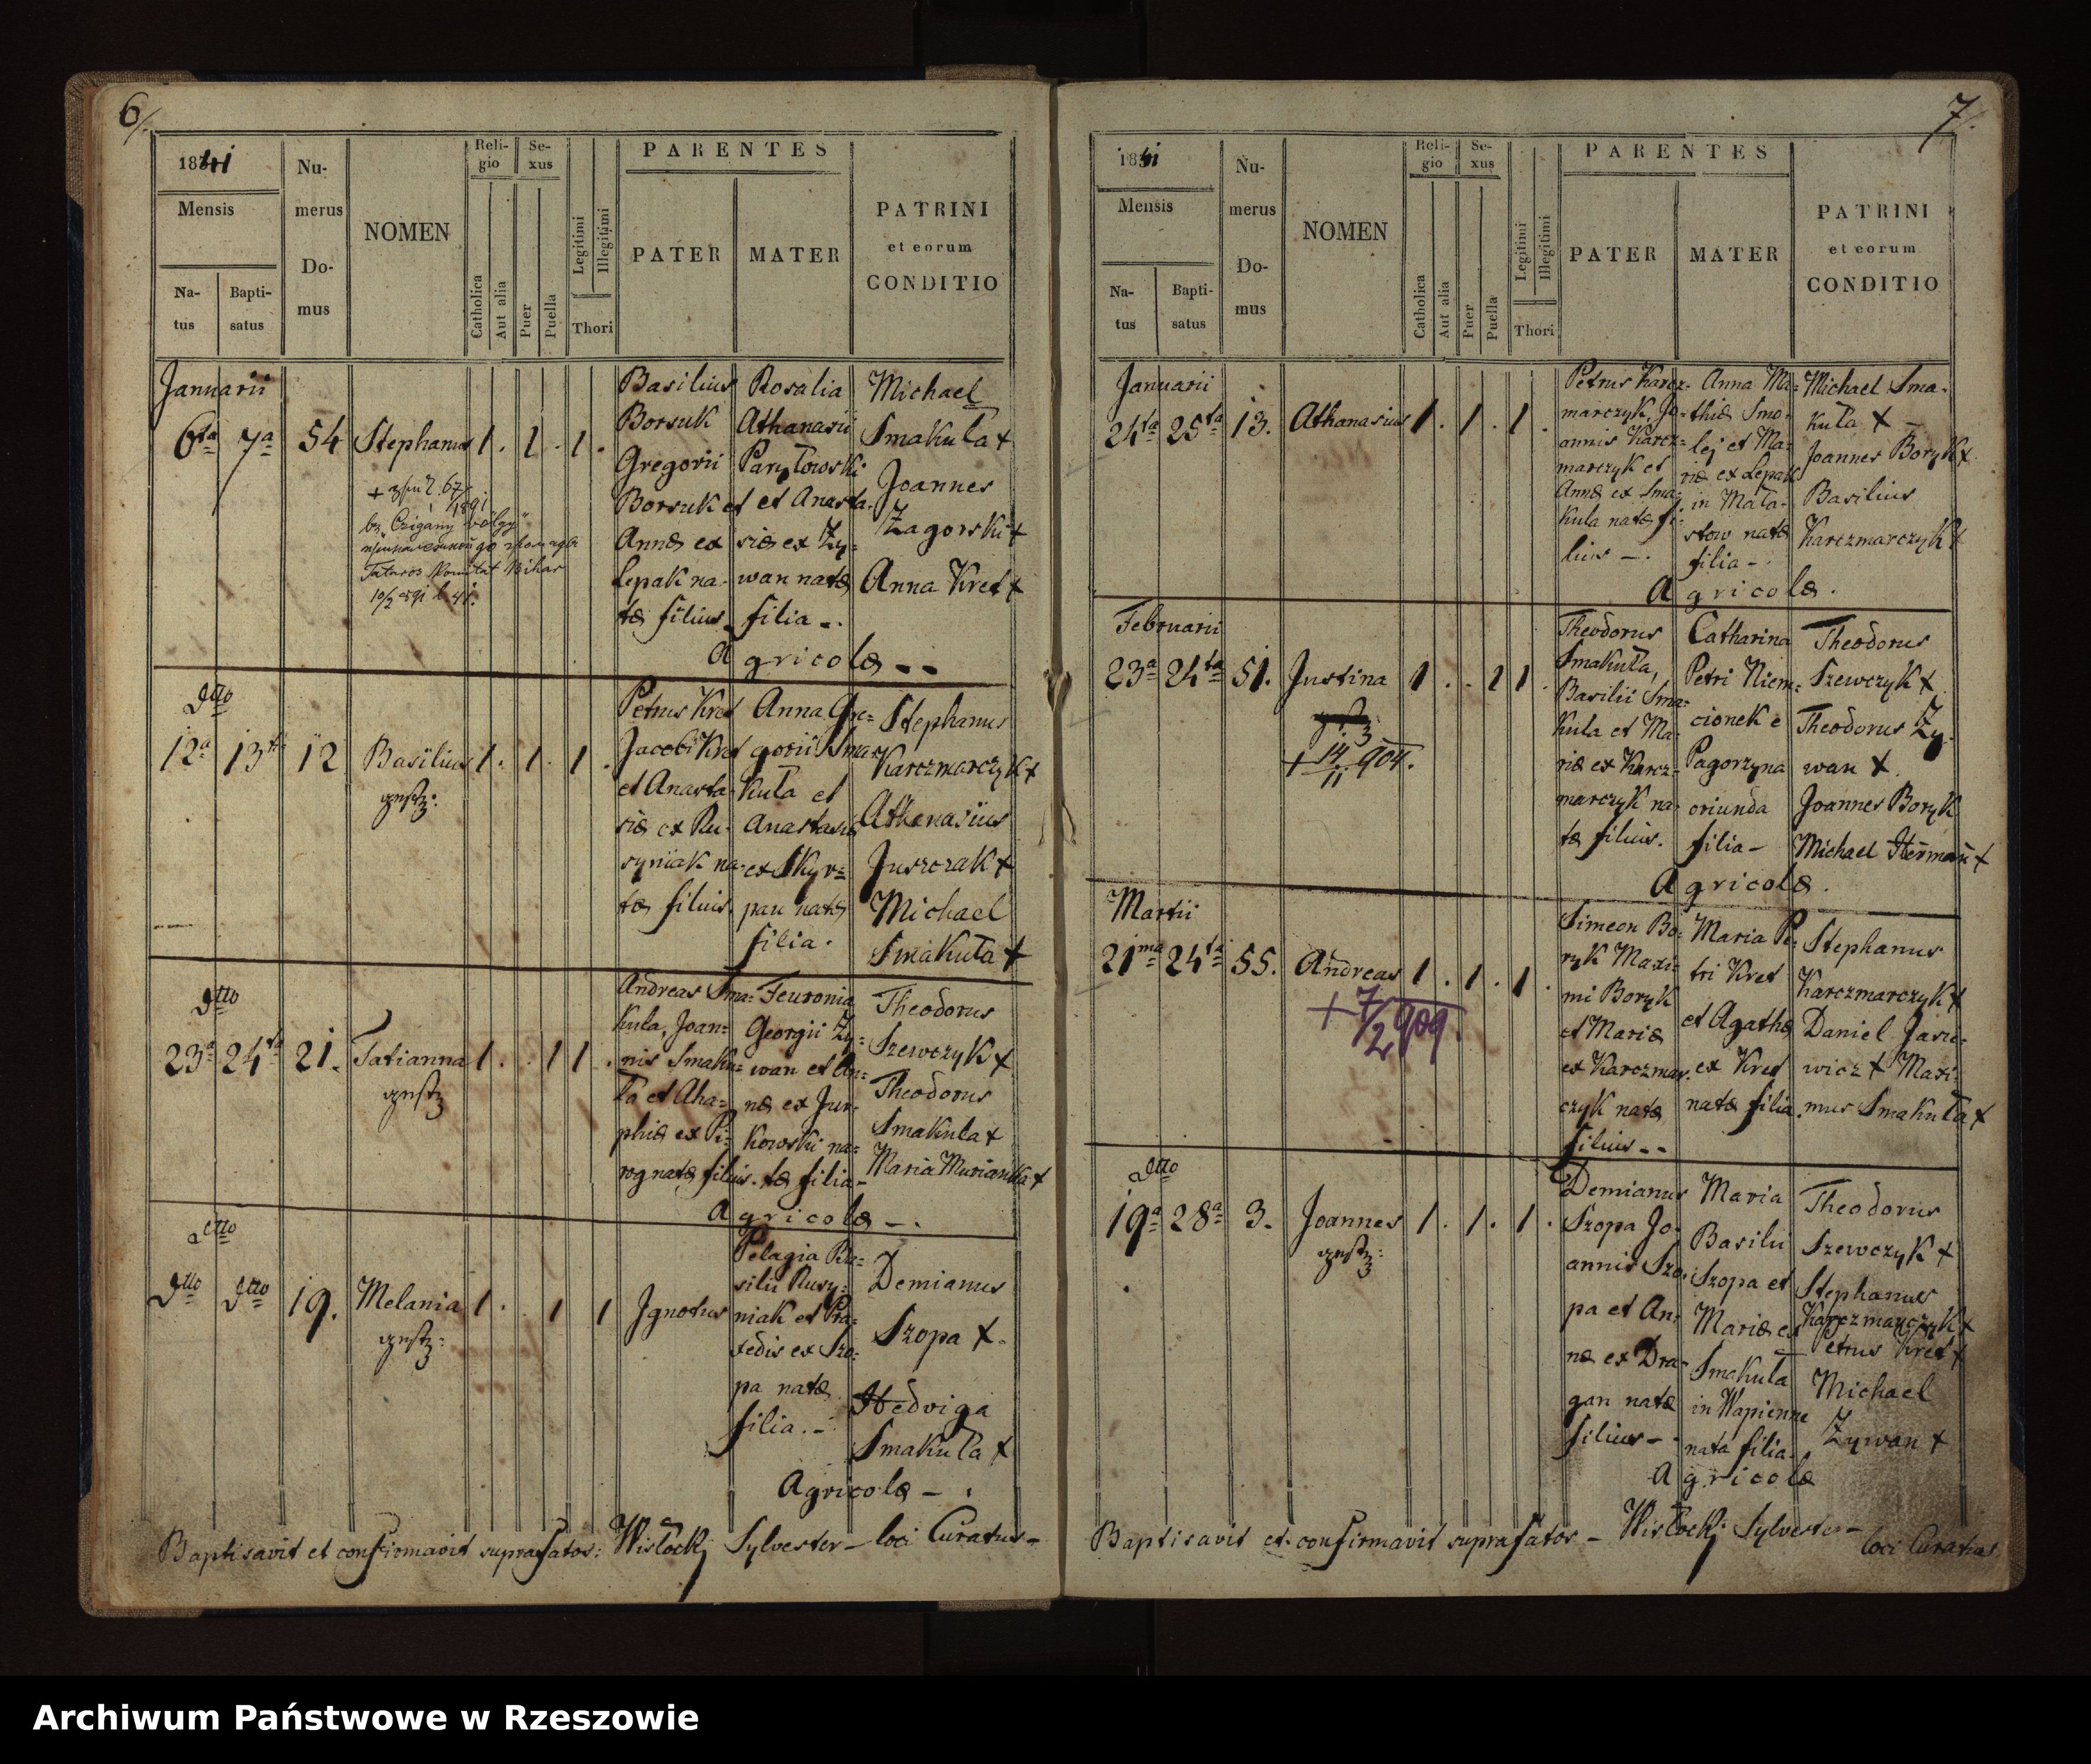 6/.
1841
Mensis
Na-
tus
Bapti-
satus
Nu-
merus
Do-
mus
NOMEN
Reli-
gio
Catholica
Aut alia
Se-
xus
Puer
Puella
Legitimi
Illegitimi
Thori
PARENTES
PATER
MATER
PATRINI
et eorum
CONDITIO
Januarii
6ta 7a 54 Stephanus 1. 1. 1.
Basilius
Borsuk
Gregorii
Borsuk et
Annæ ex
Lepak na-
tæ filius.
Rosalia
Athanasii
Paryłowski
et Anasta-
siæ ex Zy-
wan natæ
filia -.
Michael
Smakuła +
Joannes
Zagorski +
Anna Kret +
Agricolæ --
Dtto
12a 13ta 12 Basilius 1. 1. 1.
Petrus Kret
Jacobi Kret
et Anasta-
siæ ex Ru-
syniak na-
tæ filius.
Anna Gre-
gorii Sma-
kuła et
Anastasiæ
ex Skyr-
pan natæ
filia.
Stephanus
Karczmarczyk +
Athanasius
Juszczak +
Michael
Smakuła +
Dtto
23a 24ta 21. Tatianna 1. . 1 1.
Andreas Sma-
kuła, Joan-
nis Smaku-
ła et Aha-
phiæ ex Pi-
rog natæ filius.
Feuronia
Georgii Zy-
wan et An-
næ ex Jur-
kowski na-
tæ filia -
Theodorus
Szewczyk +
Theodorus
Smakuła +
Maria Murianka +
Agricolæ -.
Dtto
Dtto Dtto 19. Melania 1. . 1 1
Ignotus
Pelagia Ba-
silii Rusy-
niak et Pra-
xedis ex Szo-
pa natæ
filia.-
Demianus
Szopa +.
Hedviga
Smakuła +
Agricolæ - .
Baptisavit et confirmavit suprafatos: Wisłocki Sylvester - loci Curatus -
7.
1841
Mensis
Na-
tus
Bapti-
satus
Nu-
merus
Do-
mus
NOMEN
Reli-
gio
Catholica
Aut alia
Se-
xus
Puer
Puella
Legitimi
Illegitimi
Thori
PARENTES
PATER
MATER
PATRINI
et eorum
CONDITIO
Januarii
24ta 25ta 13. Athanasius 1. 1. 1.
Petrus Karcz-
marczyk, Jo-
annis Karcz-
marczyk et
Annæ ex Sma-
kula natæ fi-
lius -.
Anna Ma-
thiæ Smo-
lej et Ma-
riæ ex Lepak
in Mała-
stow natæ
filia -.
Michael Sma-
kuła + -
Joannes Boryk +
Basilius
Karczmarczyk +
Agricolæ.
Februarii
23a 24ta 51. Justina 1. . 1 1.
+ 14/11 904.
Theodorus
Smakuła,
Basilii Sma-
kula et Ma-
riæ ex Karcz-
marczyk na-
tæ filius.
Catharina
Petri Niem-
cionek e
Pagorzyna
oriunda
filia -
Theodorus
Szewczyk +
Theodorus Zy-
wan +.
Joannes Boryk
Michael Herman +
Agricolæ.
Martii
21ma 24ta 55. Andreas 1. 1. 1.
+ 7/2 909.
Simeon Bo-
ryk Maxi-
mi Boryk
et Mariæ
ex Karczmar-
czyk natæ
filius --
Maria Pe-
tri Kret
et Agathæ
ex Kret
natæ filia.
Stephanus
Karczmarczyk +
Daniel Jasie-
wicz + Maxi-
mus Smakuła +
Dtto
19a 28a 3. Joannes 1. 1. 1.
Demianus
Szopa Jo-
annis Szo-
pa et An-
næ ex Dra-
gan natæ
filius -
Maria
Basilii
Szopa et
Mariæ ex
Smakuła
in Wapienne
nata filia.
Theodorus
Szewczyk +
Stephanus
Karczmarczyk +
Petrus Kret +
Michael
Zywan +
Agricolæ
Baptisavit et confirmavit suprafatos - Wisłocki Sylvester -
loci Curatus
Archiwum Państwowe w Rzeszowie